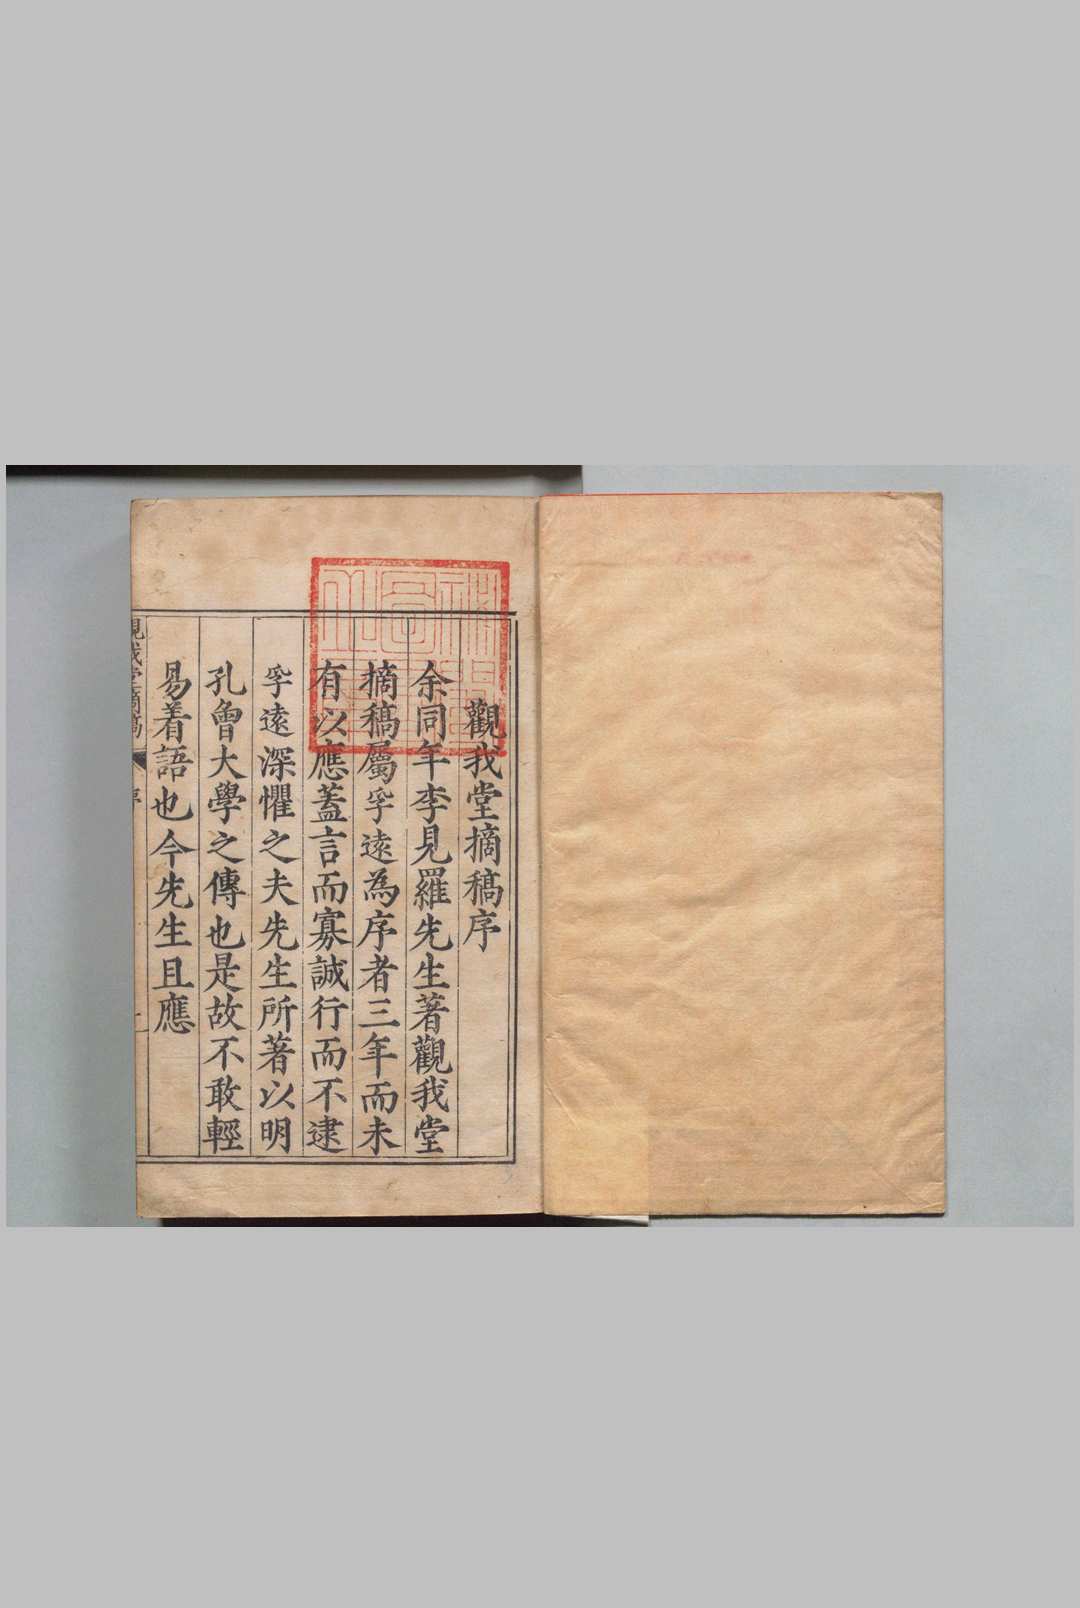 觀我堂摘稿序
余同年李見羅先生著觀我堂
摘稿屬孚遠為序者三年而未
有以應蓋言而寡誠行而不逮
孚遠深懼之夫先生所著以明
孔曾大學之傳也是故不敢輕
易着語也今先生且應